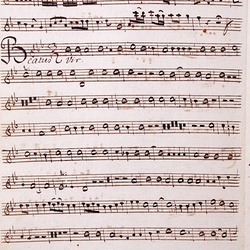 Beatus Vir.